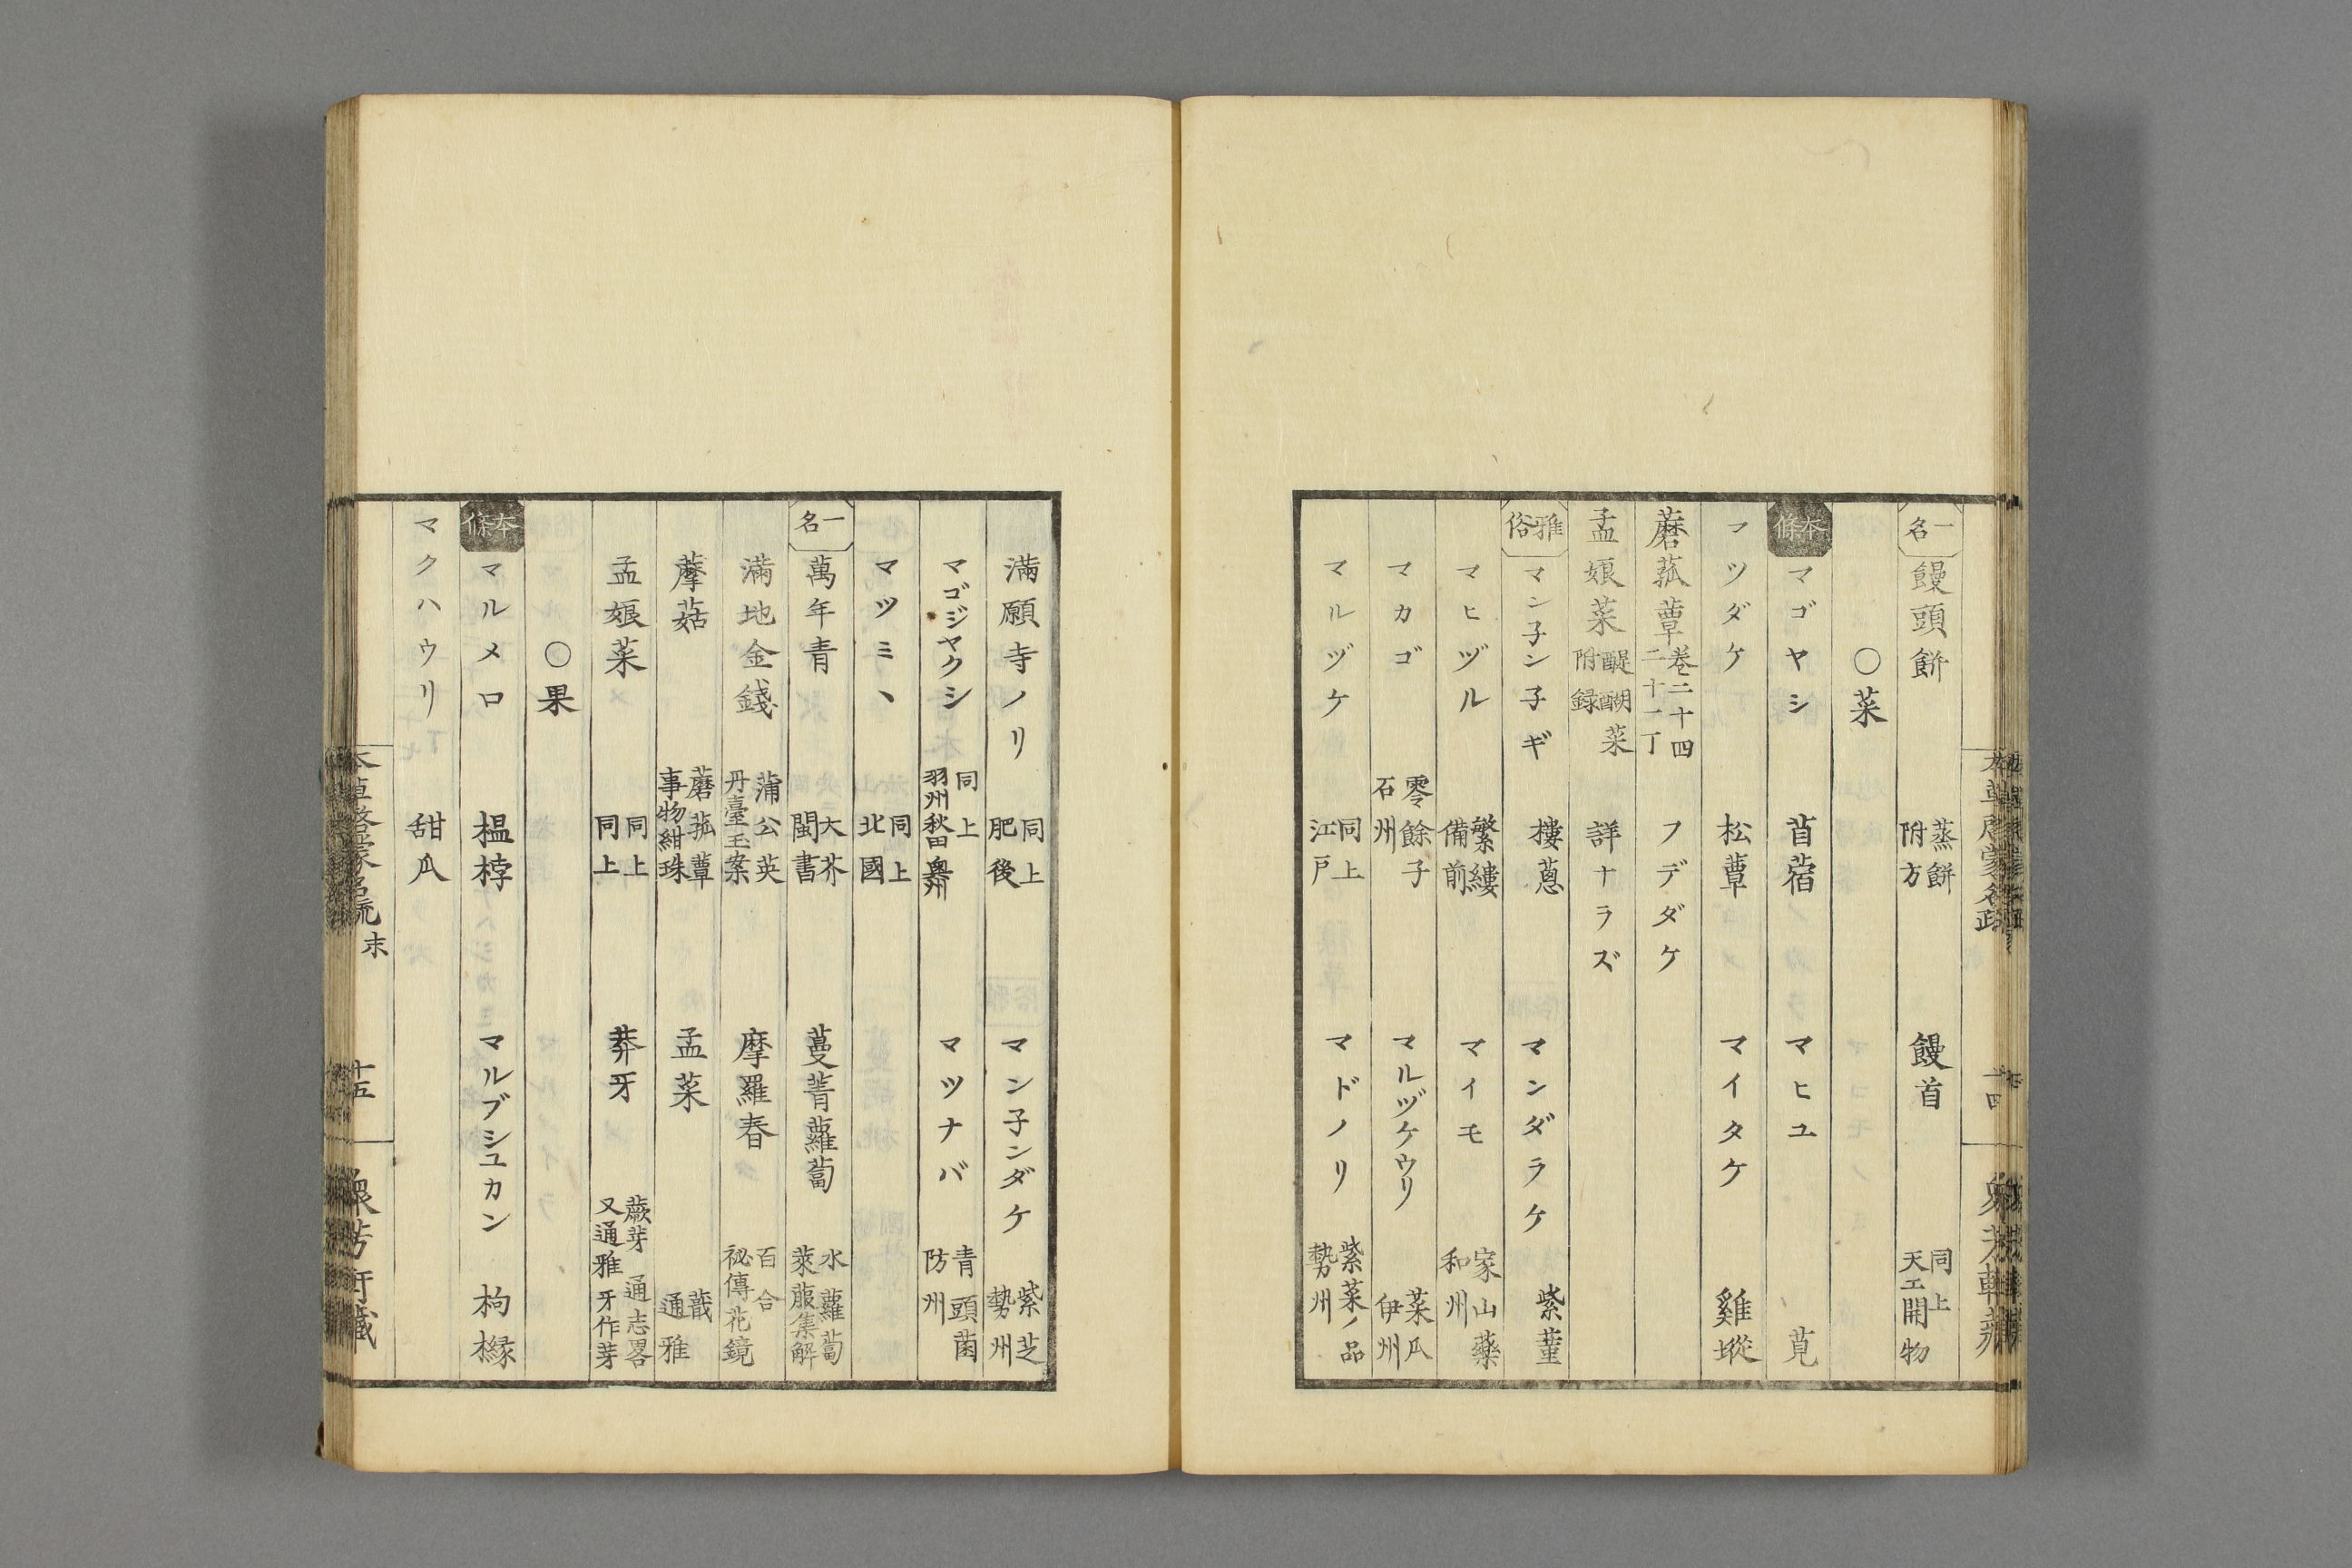 一名 饅頭餅 蒸餅 附方 饅首 同上 天工開物
〇菜
本條 マゴヤシ 苜蓿 マヒユ 莧
マツダケ 松蕈 マイタケ 雞㙡
蘑菰蕈 巻二十四 二十一丁 フデダケ
孟娘菜 醍醐菜 附録 詳ナラズ
雅俗 マン子ン子ギ 樓葱 マンダラケ 紫菫
マヒヅル 繁縷 備前 マイモ 家山藥 和州
マカゴ 零餘子 石州 マルヅケウリ 菜瓜 伊州
マルヅケ 同上 江戸 マドノリ 紫菜ノ品 勢州
満願寺ノリ 同上 肥後 マン子ンダケ 紫芝 勢州
マゴジヤクシ 同上 羽州秋田奥州 マツナバ 青頭菌 防州
マツミヽ 同上 北國
一名 萬年青 大芥 閩書 蔓菁蘿蔔 水蘿蔔 萊菔集解
満地金錢 蒲公英 丹臺玉案 摩羅春 百合 祕傳花鏡
藦菇 蘑菰蕈 事物紺珠 孟菜 蕺 通雅
孟娘菜 同上 同上 莽牙 蕨芽 通志畧 又通雅牙作芽
〇果
本條 マルメロ 榲桲 マルブシユカン 枸櫞
マクハウリ 甜瓜
末 十五